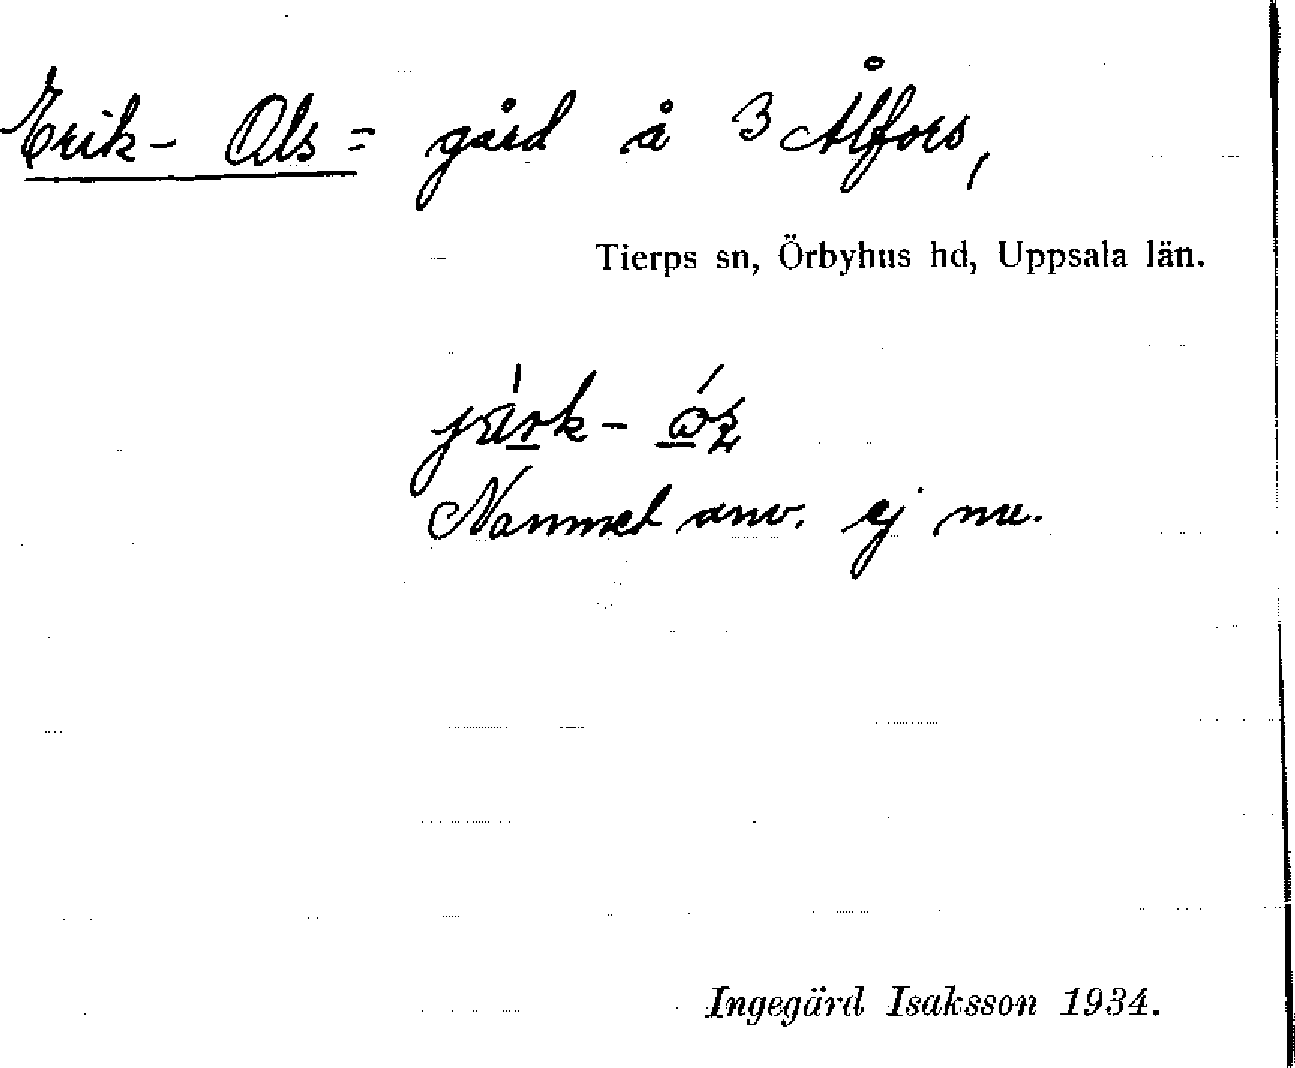 Erik- Ols = gård å 3 Ålfors,
Tierps sn, Örbyhus hd, Uppsala län.
Namnet anv. ej nu.
Ingegärd Isaksson 1934.